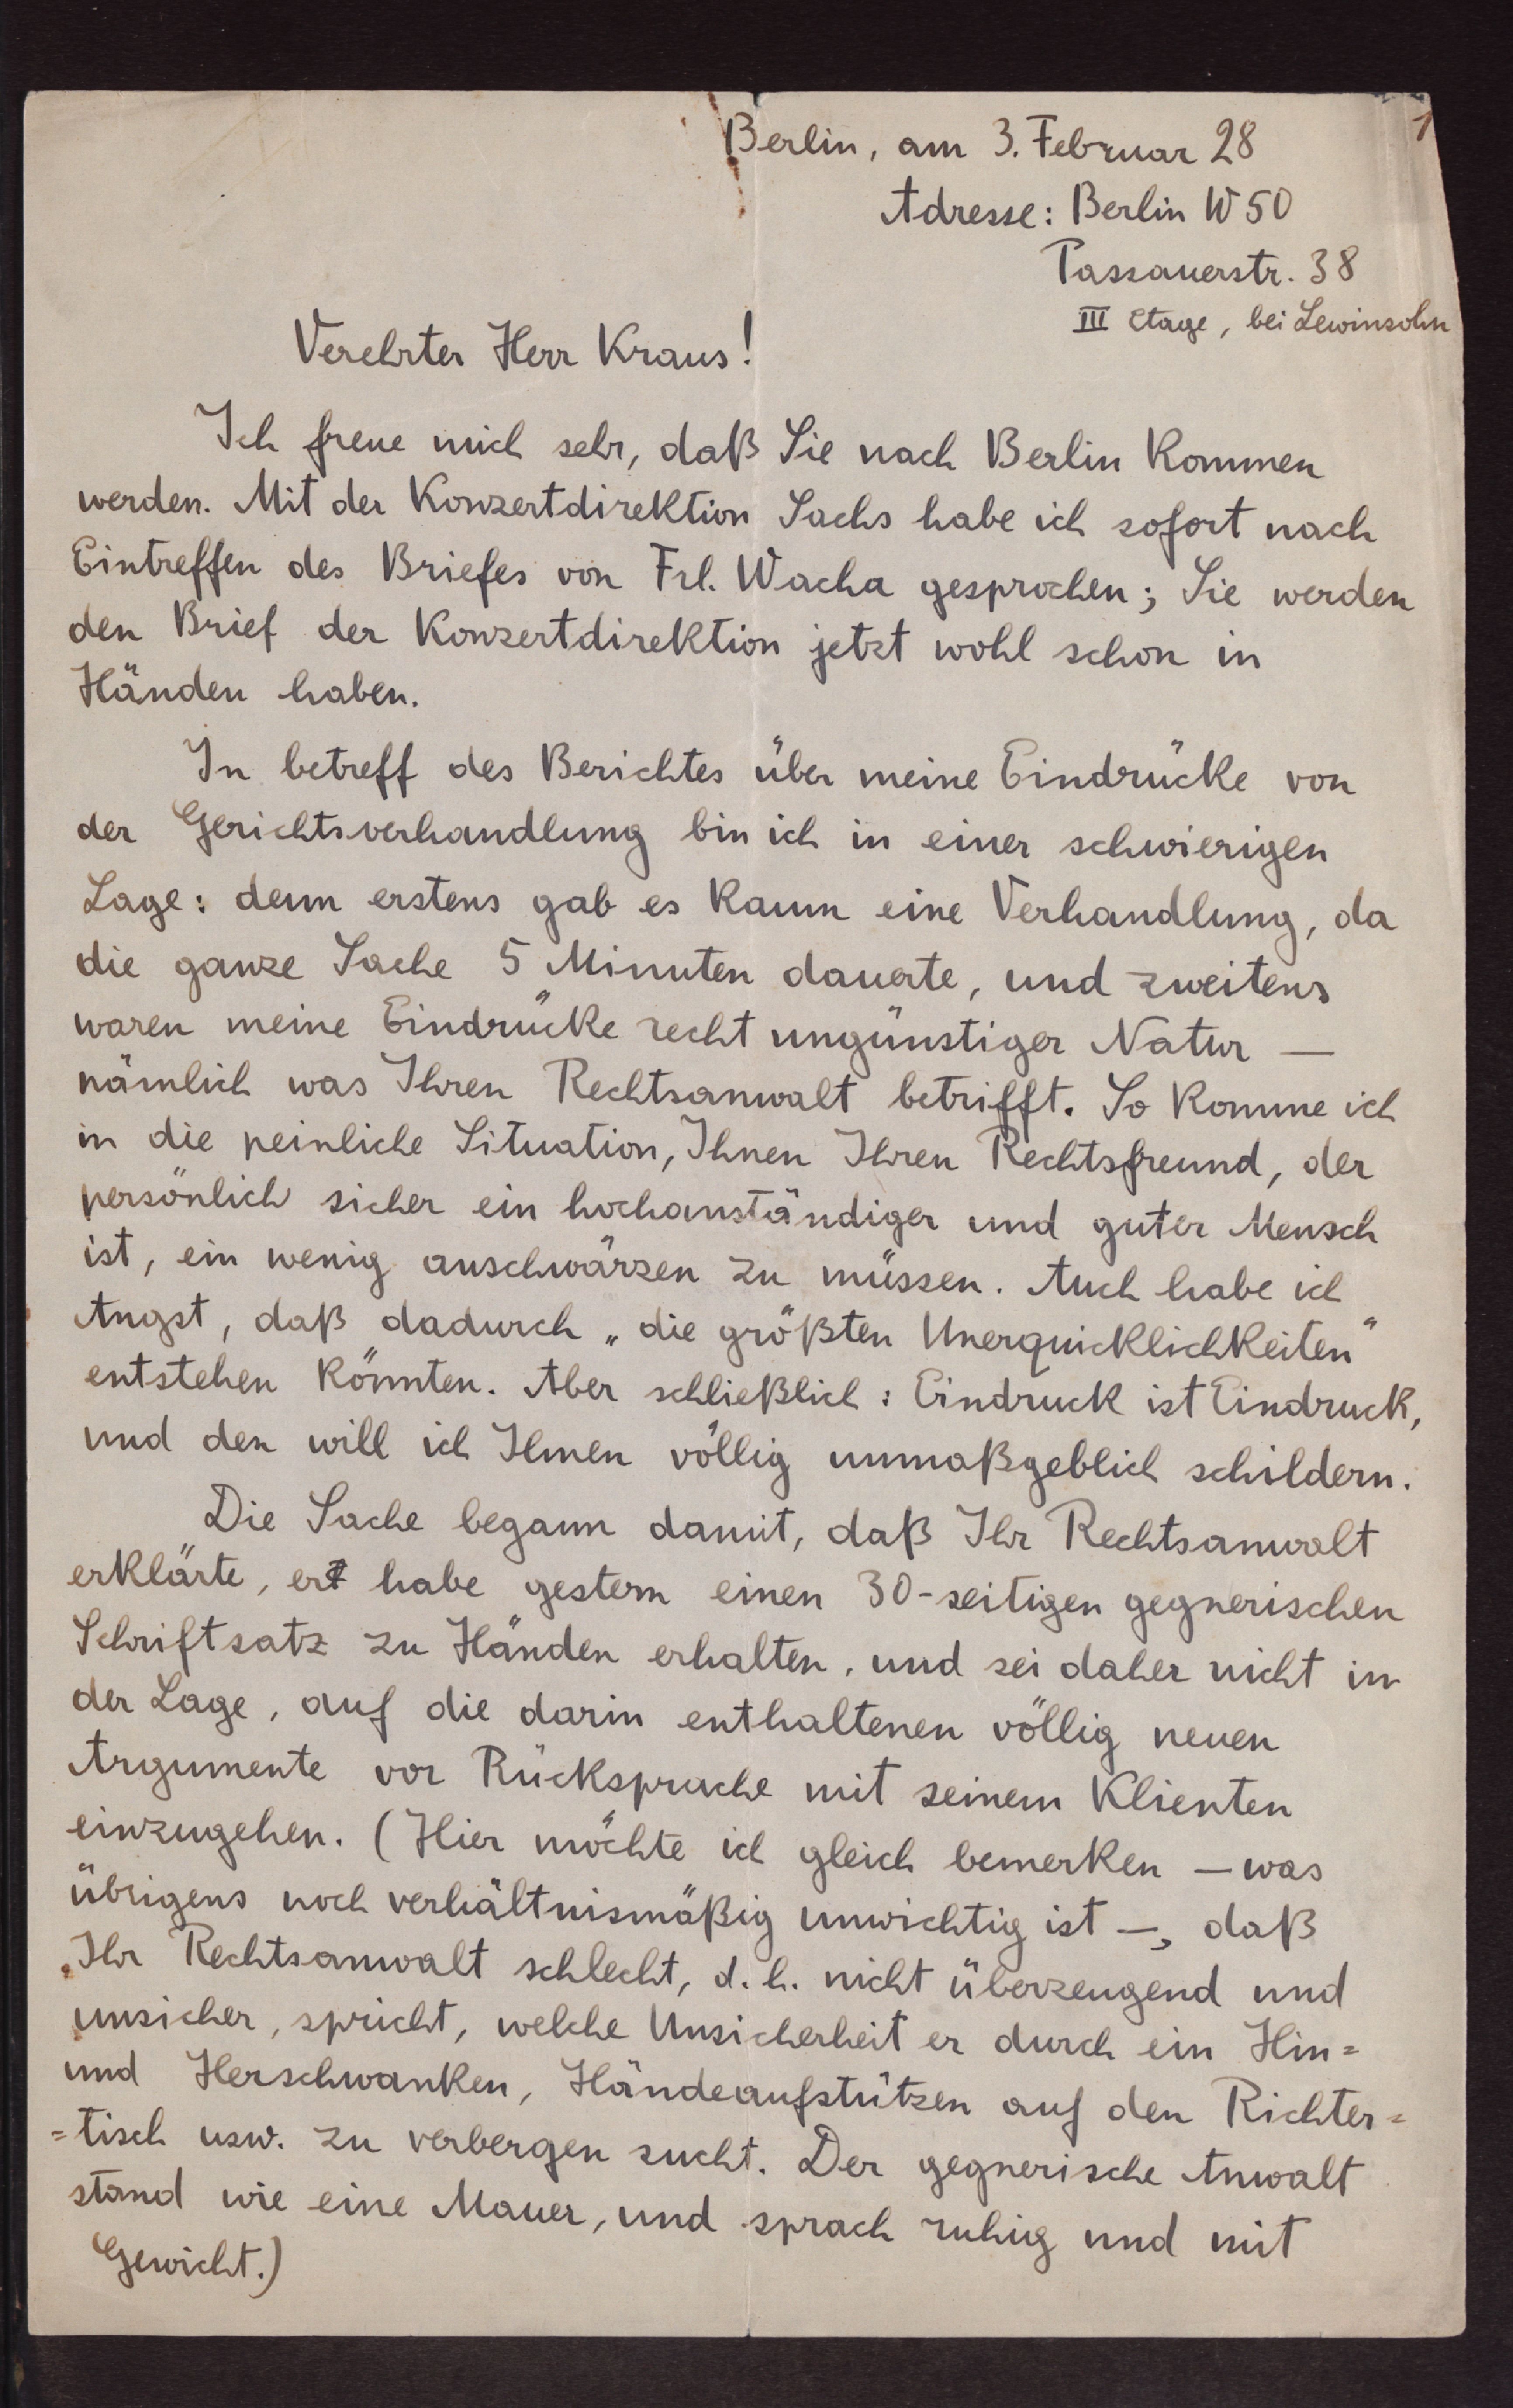 1
Berlin, am 3. Februar 28
Adresse: Berlin W 50
Passauerstr. 38
III Etage, bei Lewinsohn
Verehrter Herr Kraus!
Ich freue mich sehr, daß Sie nach Berlin kommen
werden. Mit der Konzertdirektion Sachs habe ich sofort nach
Eintreffen des Briefes von Frl. Wacha gesprochen; Sie werden
den Brief der Konzertdirektion jetzt wohl schon in
Händen haben.
In betreff des Berichtes über meine Eindrücke von
der Gerichtsverhandlung bin ich in einer schwierigen
Lage: denn erstens gab es kaum eine Verhandlung, da
die ganze Sache 5 Minuten dauerte, und zweitens
waren meine Eindrücke recht ungünstiger Natur —
nämlich was Ihren Rechtsanwalt betrifft. So komme ich
in die peinliche Situation, Ihnen Ihren Rechtsfreund, der
persönlich sicher ein hochanständiger und guter Mensch
ist, ein wenig anschwärzen zu müssen. Auch habe ich
Angst, daß dadurch „die größten Unerquicklichkeiten“
entstehen könnten. Aber schließlich: Eindruck ist Eindruck,
und den will ich Ihnen völlig unmaßgeblich schildern.
Die Sache begann damit, daß Ihr Rechtsanwalt
erklärte, er habe gestern einen 30-seitigen gegnerischen
Schriftsatz zu Händen erhalten, und sei daher nicht in
der Lage, auf die darin enthaltenen völlig neuen
Argumente vor Rücksprache mit seinem Klienten
einzugehen. (Hier möchte ich gleich bemerken — was
übrigens noch verhältnismäßig unwichtig ist —, daß
Ihr Rechtsanwalt schlecht, d. h. nicht überzeugend und
unsicher, spricht, welche Unsicherheit er durch ein Hin=
und Herschwanken, Händeaufstützen auf den Richter=
=tisch usw. zu verbergen sucht. Der gegnerische Anwalt
stand wie eine Mauer, und sprach ruhig und mit
Gewicht.)